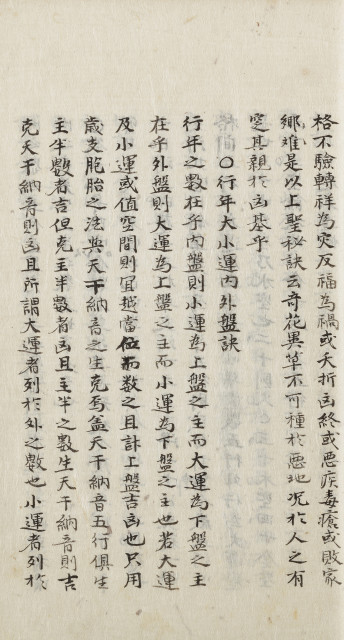 格不驗轉祥為灾反福為禍或夭折凶終或惡疾毒瘡或敗家
鄉唯是以上聖秘訣云奇花異草不可種於惡地况於人之有
㝎其親於凶基乎
○行年大小運内外盤訣
行年之數在乎内盤則小運為上盤之主而大運為下盤之主
在乎外盤則大運為上盤之主而小運為下盤之主也若大運
及小運或值空間則冝越當位而数之且計上盤吉凶也只用
歲支胞胎之法與天干納音之生克焉盖天干納音五行俱生
主半數者吉但克主半數者凶且主半之數生天干納音則吉
克天干納音則凶且所謂大運者列於外之數也小運者列於